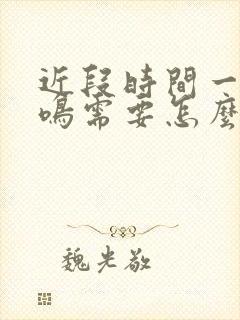 近段時間一
鳴需要怎麼
魏光敬